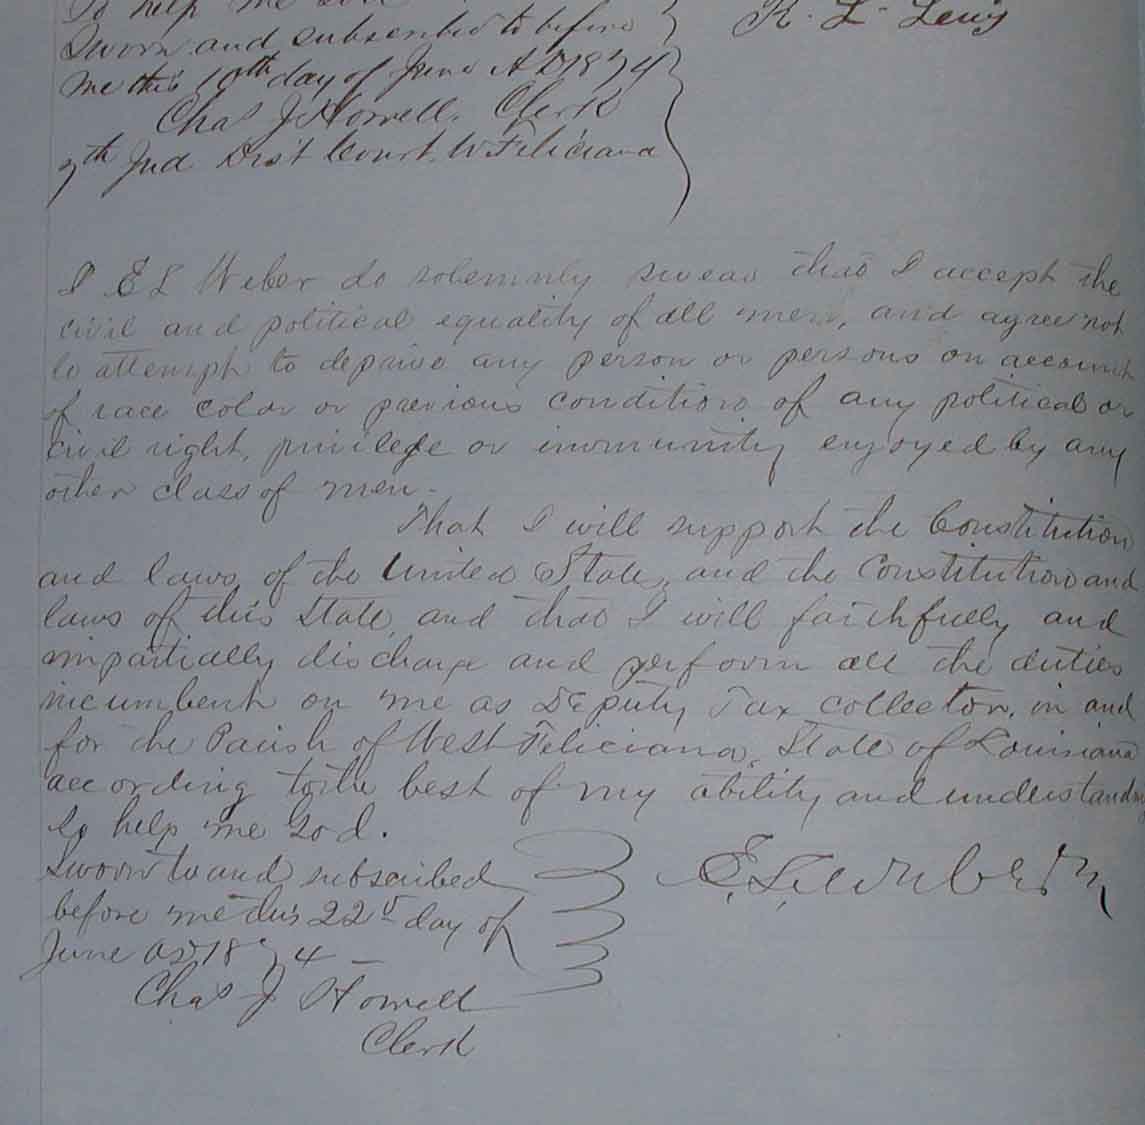 So help me God
Sworn and subscribed to before
R. L. Lewis
me this 10th day of June A D 1874
Chas J Howell. Clerk
7th Jud Dist Court W Feliciana
I E L Weber do solemnly swear that I accept the
civil and political equality of all men, and agree not
to attempt to deprive any person or persons on account
of race color or previous condition of any political or
civil right, privilege or immunity enjoyed by any
other class of men.
That I will support the Constitution
and laws of the United State, and the Constitution and
laws of this State, and that I will faithfully and
impartially discharge and perform all the duties
incumbent on me as Deputy Tax Collector, in and
for the Parish of West Feliciana, State of Louisiana
according to the best of my ability and understandg
So help me God.
Sworn to and subscribed
E. L. Weber
before me this 22d day of
June AD 1874 —
Chas J Howell
Clerk